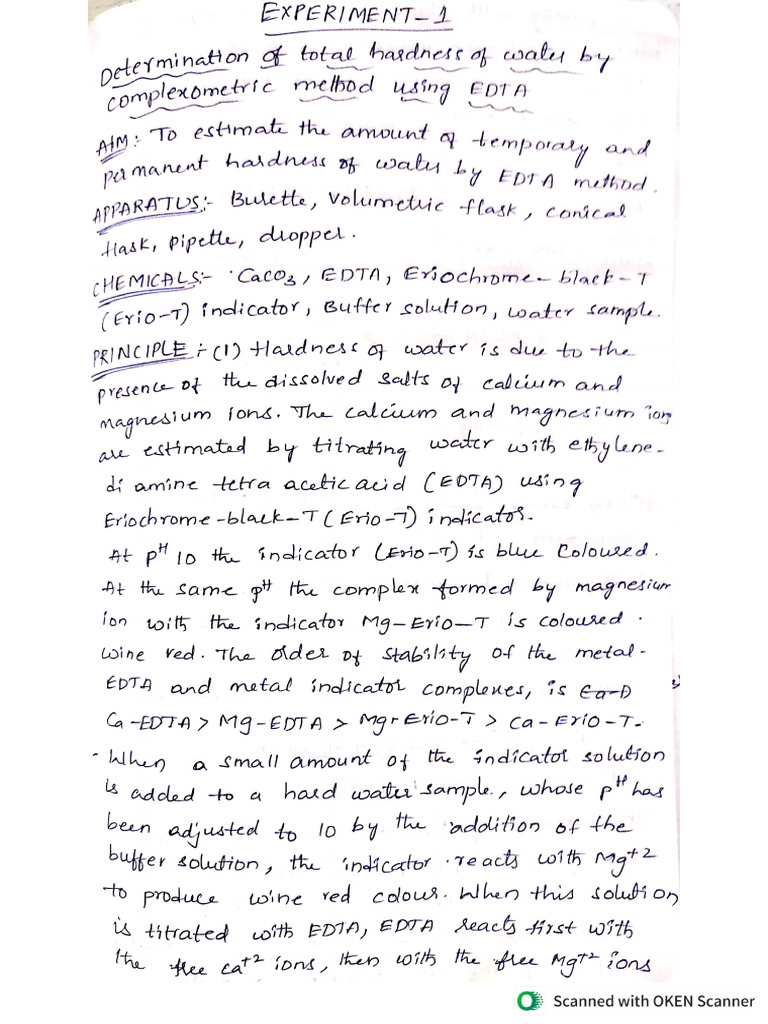 EXPERIMENT-1
Determination of total hardness of water by
complexometric method using EDTA
AIM:- To estimate the amount of temporary and
permanent hardness of water by EDTA method.
APPARATUS:- Burette, Volumetric flask, conical
flask, pipette, dropper.
CHEMICALS:- CaCO3, EDTA, Eriochrome-black-T
(Erio-T) indicator, Buffer solution, water sample.
PRINCIPLE:- (1) Hardness of water is due to the
presence of the dissolved salts of calcium and
magnesium ions. The calcium and magnesium ion
are estimated by titrating water with ethylene-
di amine tetra acetic acid (EDTA) using
Eriochrome-black-T (Erio-T) indicator.
At pH 10 the indicator (Erio-T) is blue Coloured.
At the same pH the complex formed by magnesium
ion with the indicator Mg-Erio-T is coloured.
wine red. The order of stability of the metal-
EDTA and metal indicator complexes, is Ca-D
Ca-EDTA > Mg-EDTA > Mg-Erio-T > Ca-Erio-T.
When a small amount of the indicator solution
is added to a hard water sample, whose pH has
been adjusted to 10 by the addition of the
buffer solution, the indicator reacts with Mg+2
to produce wine red colour. When this solution
is titrated with EDTA, EDTA reacts first with
the free Ca+2 ions, then with the free Mg+2 ions
Scanned with OKEN Scanner